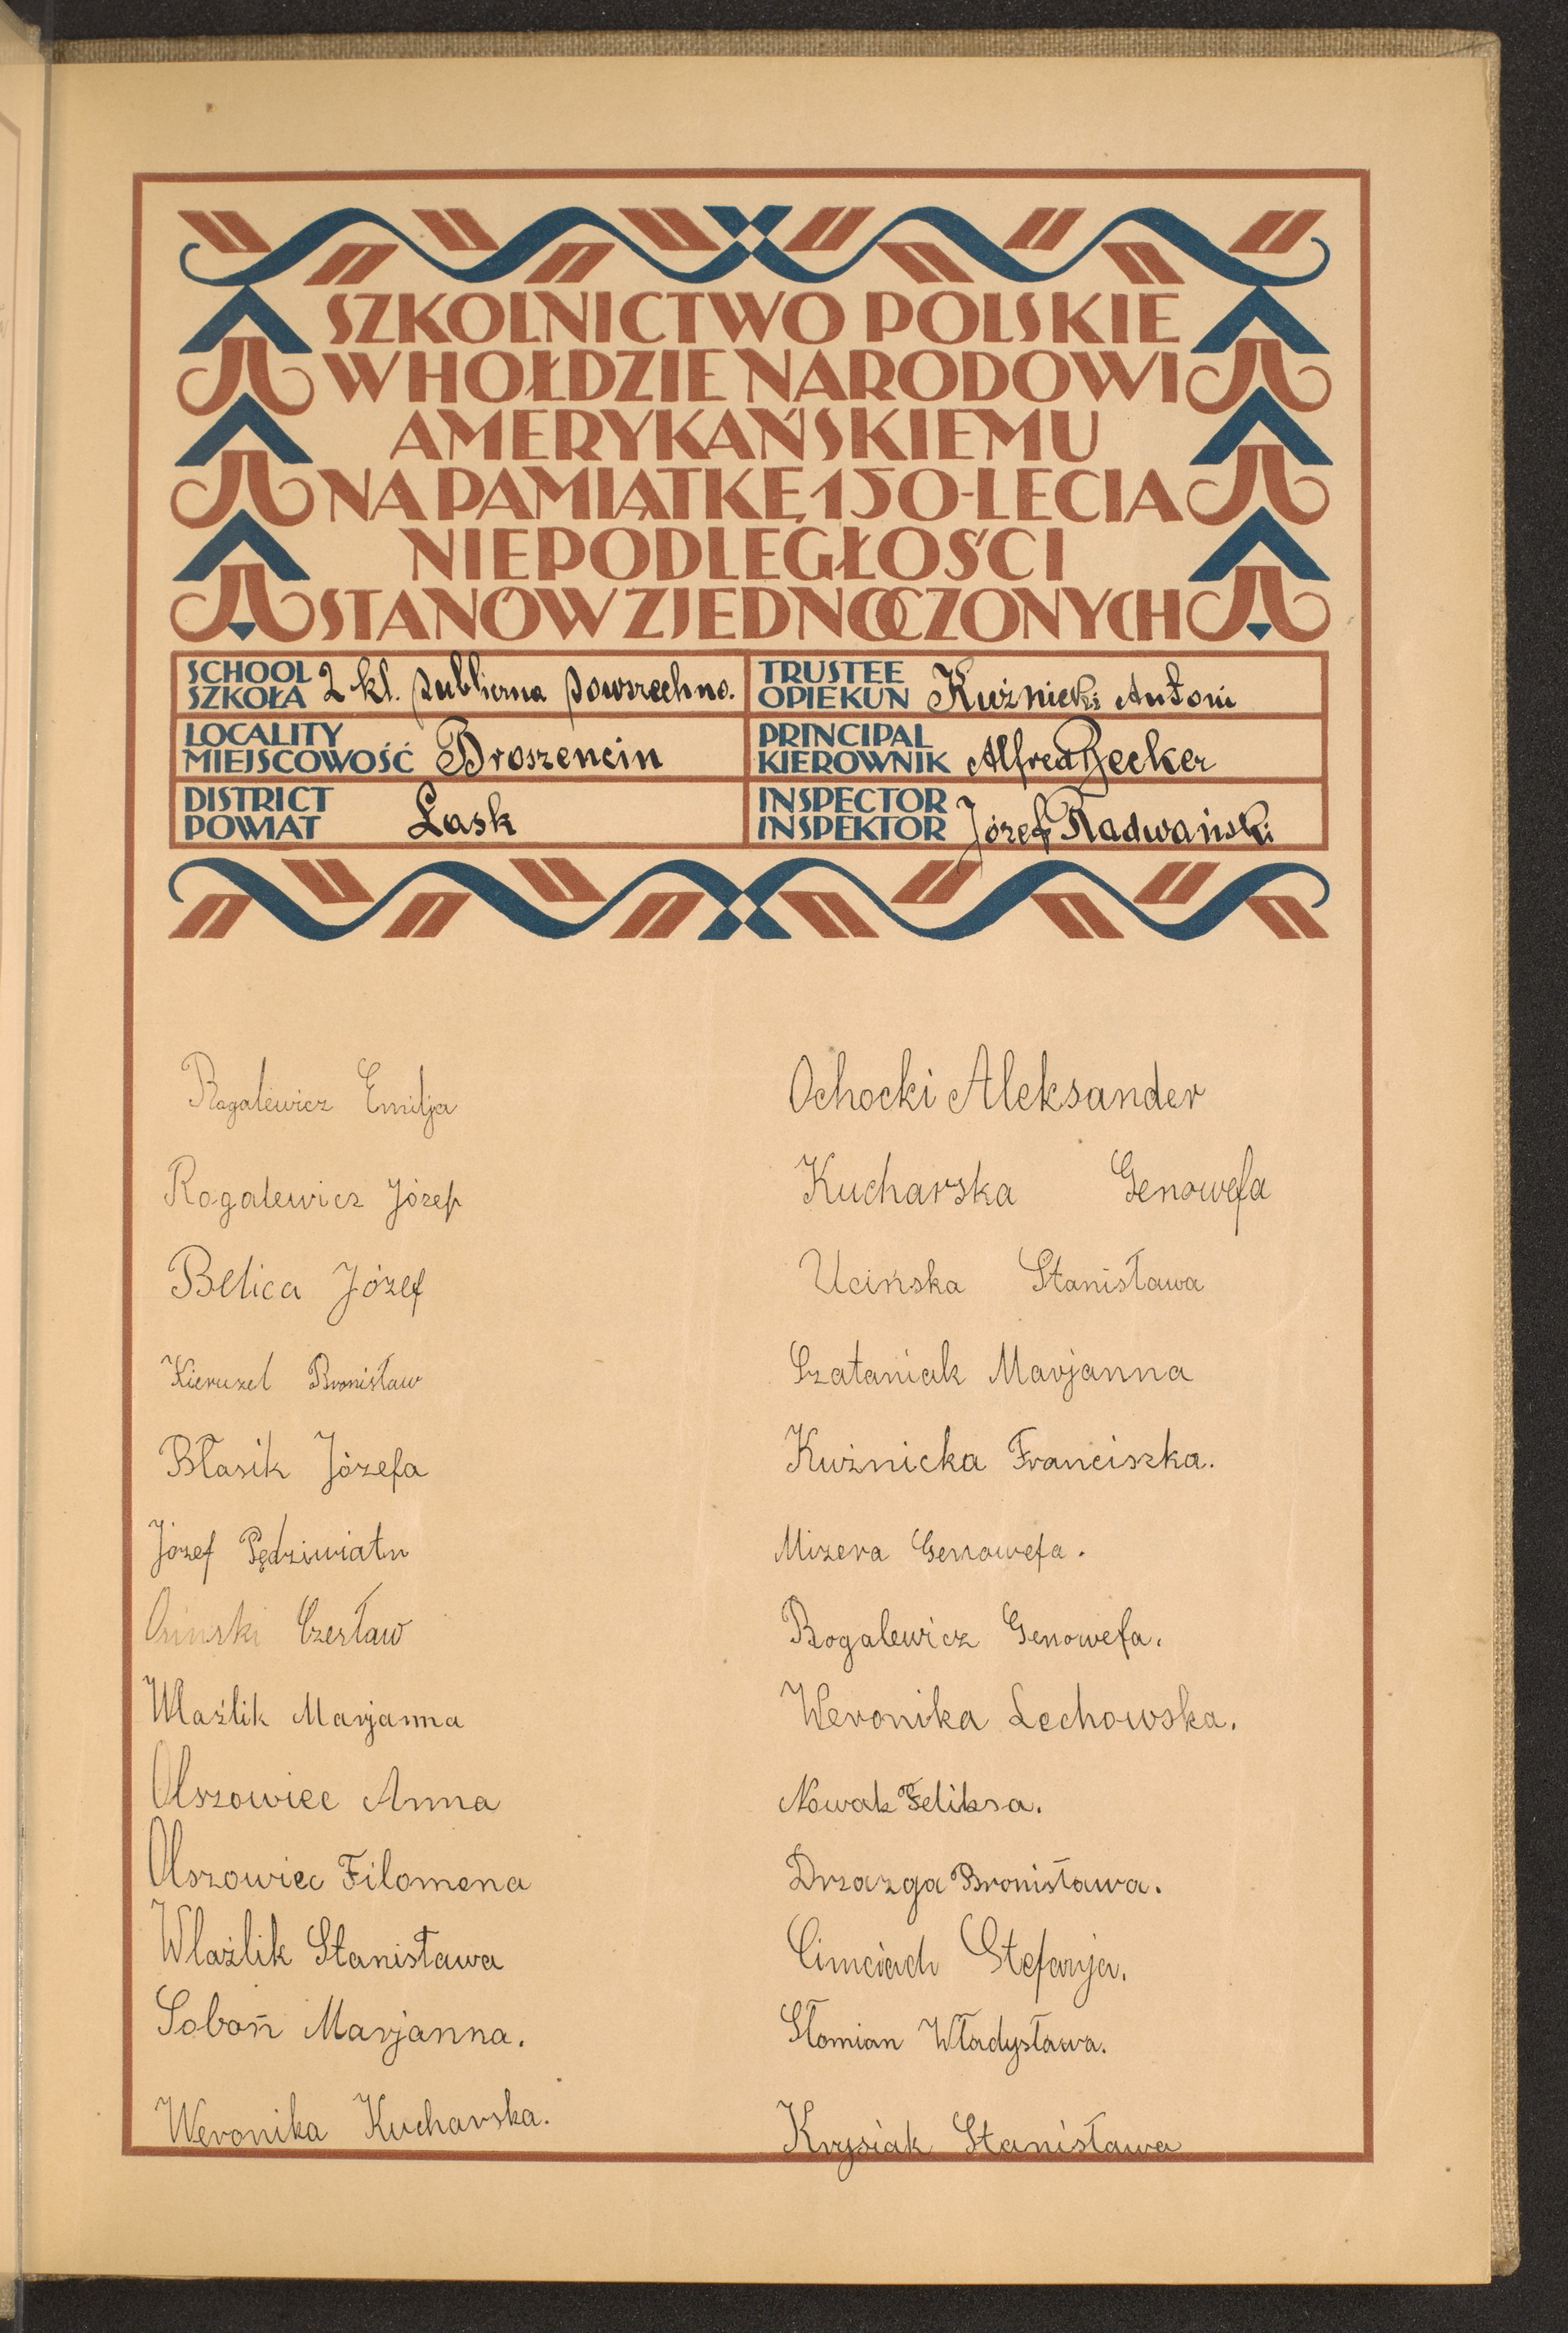 SZKOLNICTWO POLSKIE
W HOŁDZIE NARODOWI
AMERYKAŃSKIEMU
NA PAMIĄTKĘ 150-LECIA
NIEPODLEGŁOŚCI
STANÓW ZJEDNOCZONYCH
SCHOOL
SZKOŁA 2 kl. publiczna powszechna.
LOCALITY
MIEJSCOWOŚĆ Broszencin
DISTRICT
POWIAT Łask
TRUSTEE
OPIEKUN Kuźnicki Antoni
PRINCIPAL
KIEROWNIK Alfred Becker
INSPECTOR
INSPEKTOR Józef Radwański
Rogalewicz Emilja
Rogalewicz Józef
Belica Józef
Kieruzel Bronisław
Błasik Józefa
Józef Pędziwiatr
Osinski Czesław
Wlaźlik Marjanna
Olszowiec Anna
Olszowiec Filomena
Wlaźlik Stanisława
Soboń Marjanna.
Weronika Kucharska.
Ochocki Aleksander
Kucharska Genowefa
Ucińska Stanisława
Szataniak Marjanna
Kuźnicka Franciszka.
Mizera Genowefa.
Rogalewicz Genowefa.
Weronika Lechowska.
Nowak Feliksa.
Drzazga Bronisława.
Cimciach Stefanja.
Słomian Władysława.
Krysiak Stanisława